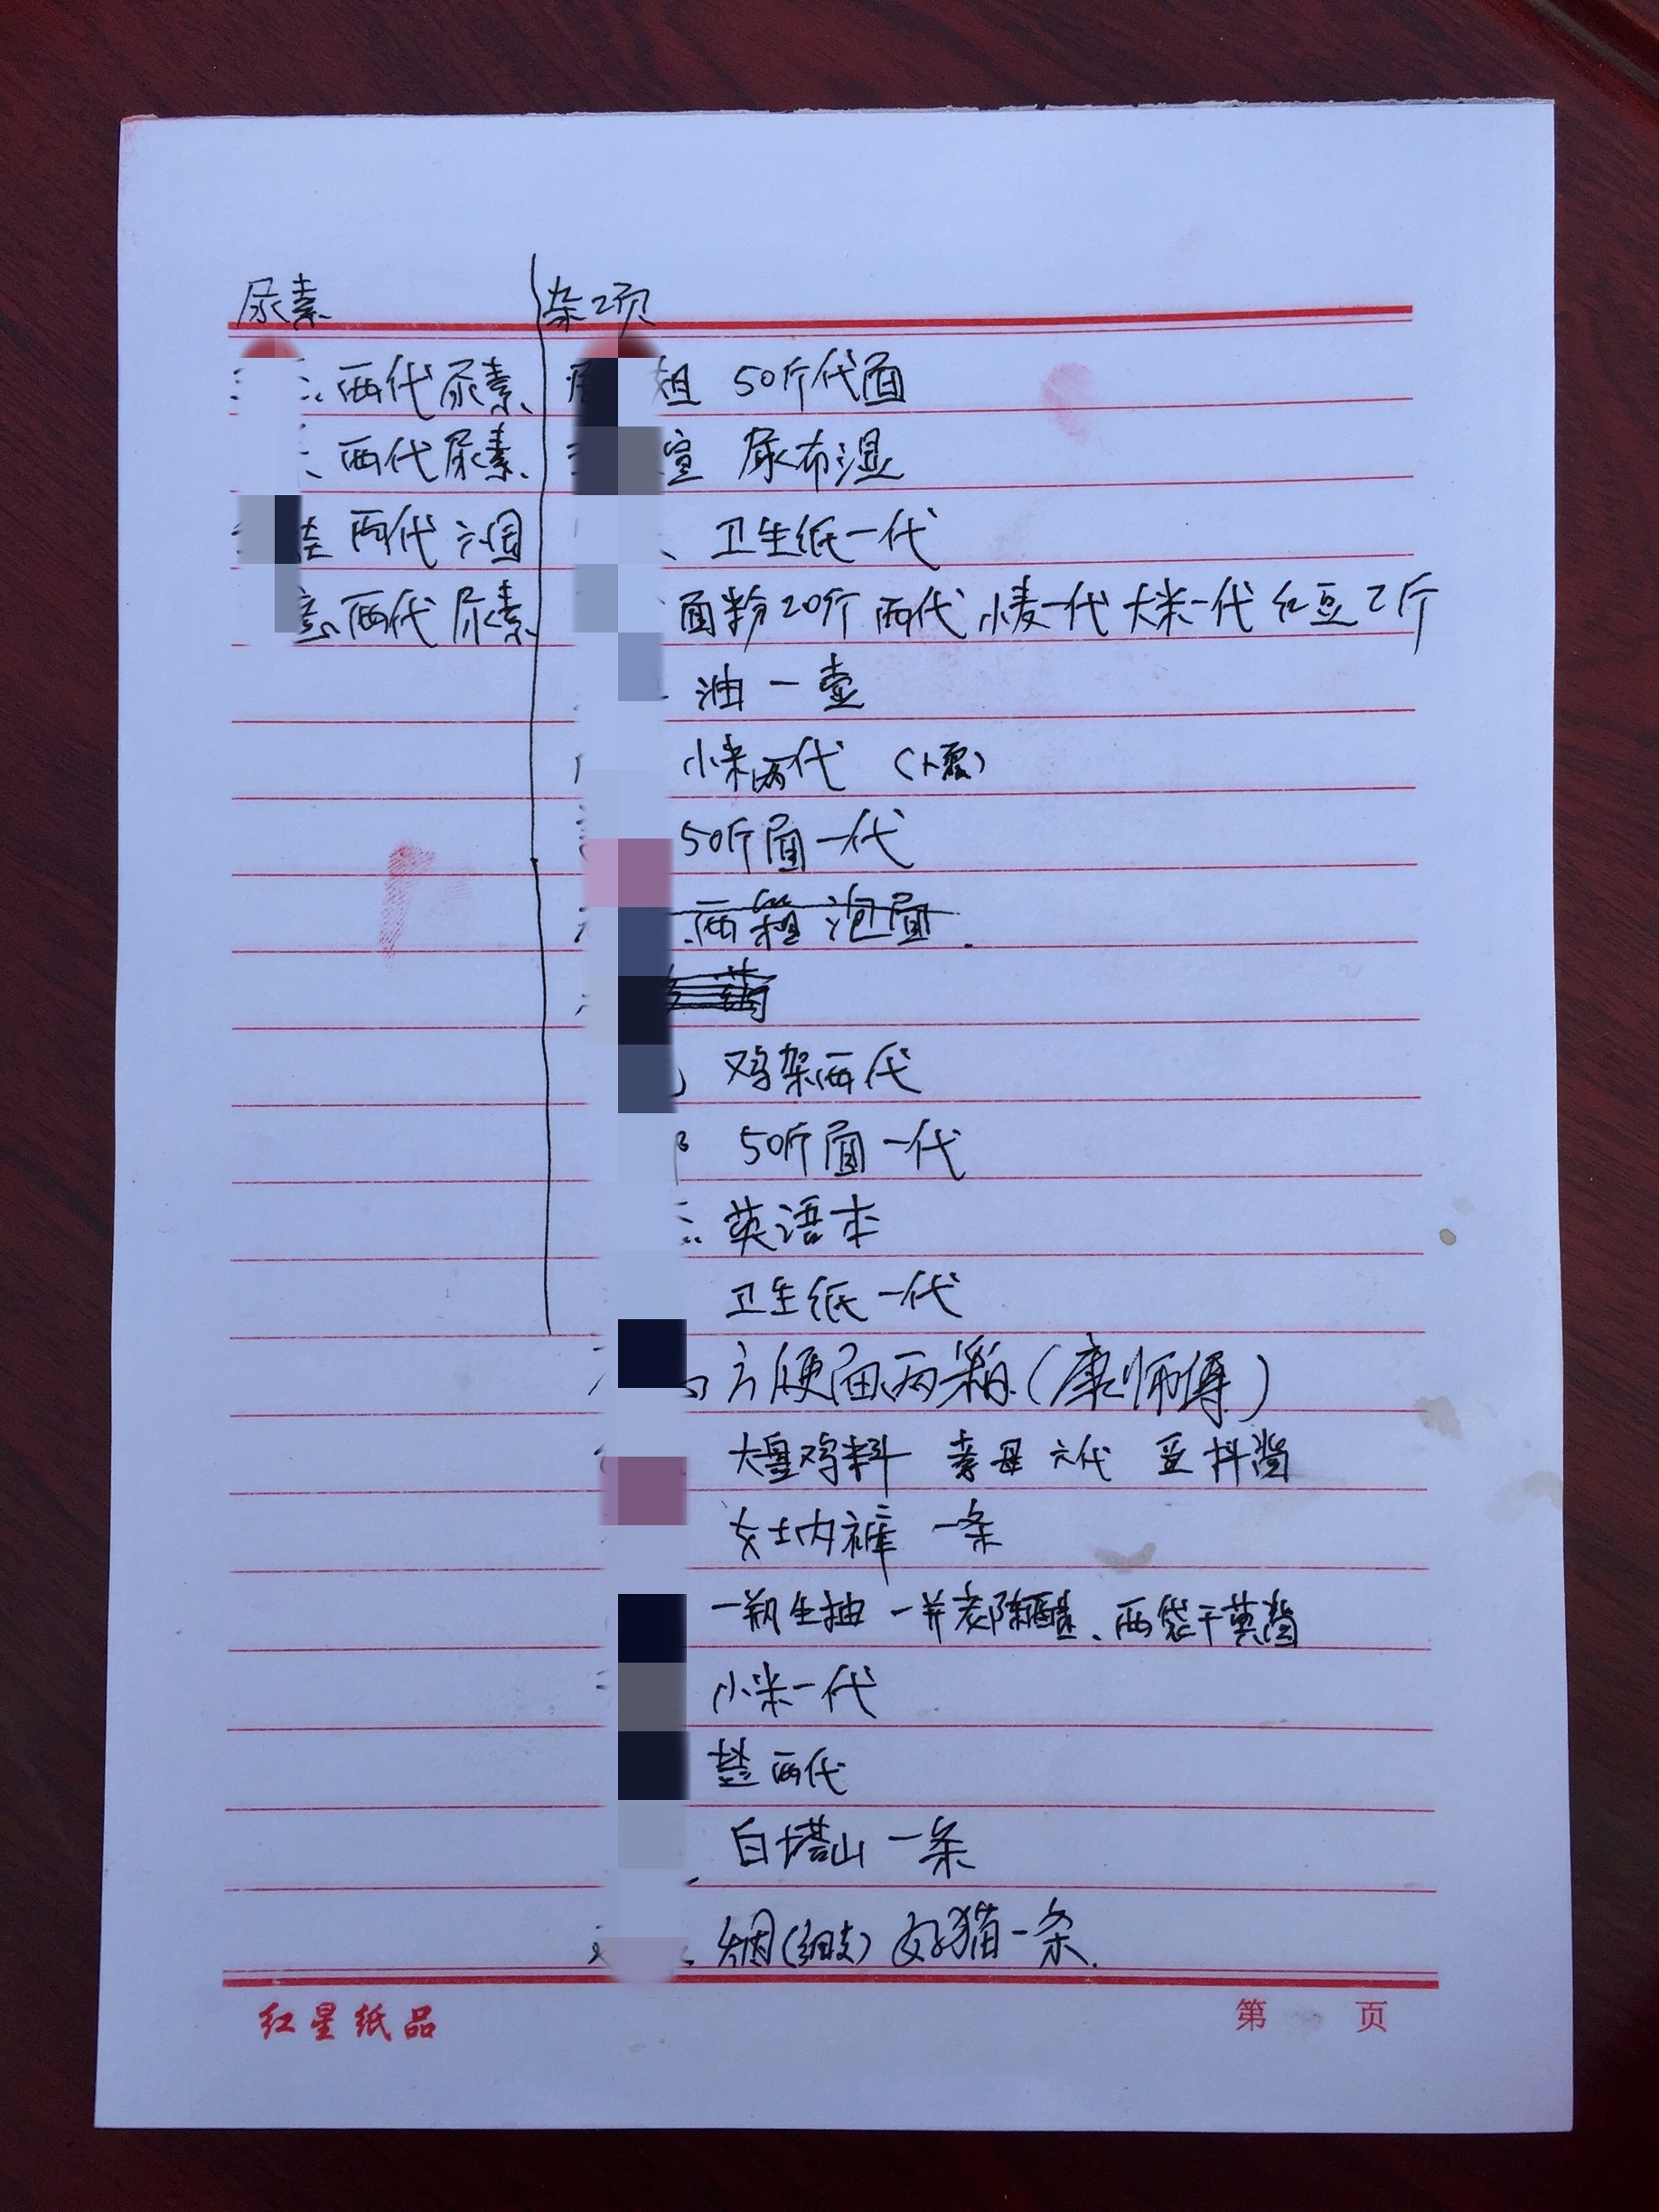 尿素
两代尿素
两代尿素
两代六国
两代尿素
杂项
50斤代面
尿布湿
卫生纸一代
面粉20斤 两代 小麦一代 大米一代 红豆2斤
油一壶
小米两代
50斤面一代
两箱泡面
鸡架两代
50斤面一代
英语本
卫生纸一代
方便面两箱(康师傅)
大盘鸡料 六代 豆抖酱
女士内裤 一条
一瓶生抽 一并老陈醋、两袋干黄酱
小米一代
盐两代
白塔山一条
烟(细支)好猫一条.
红星纸品
第 页